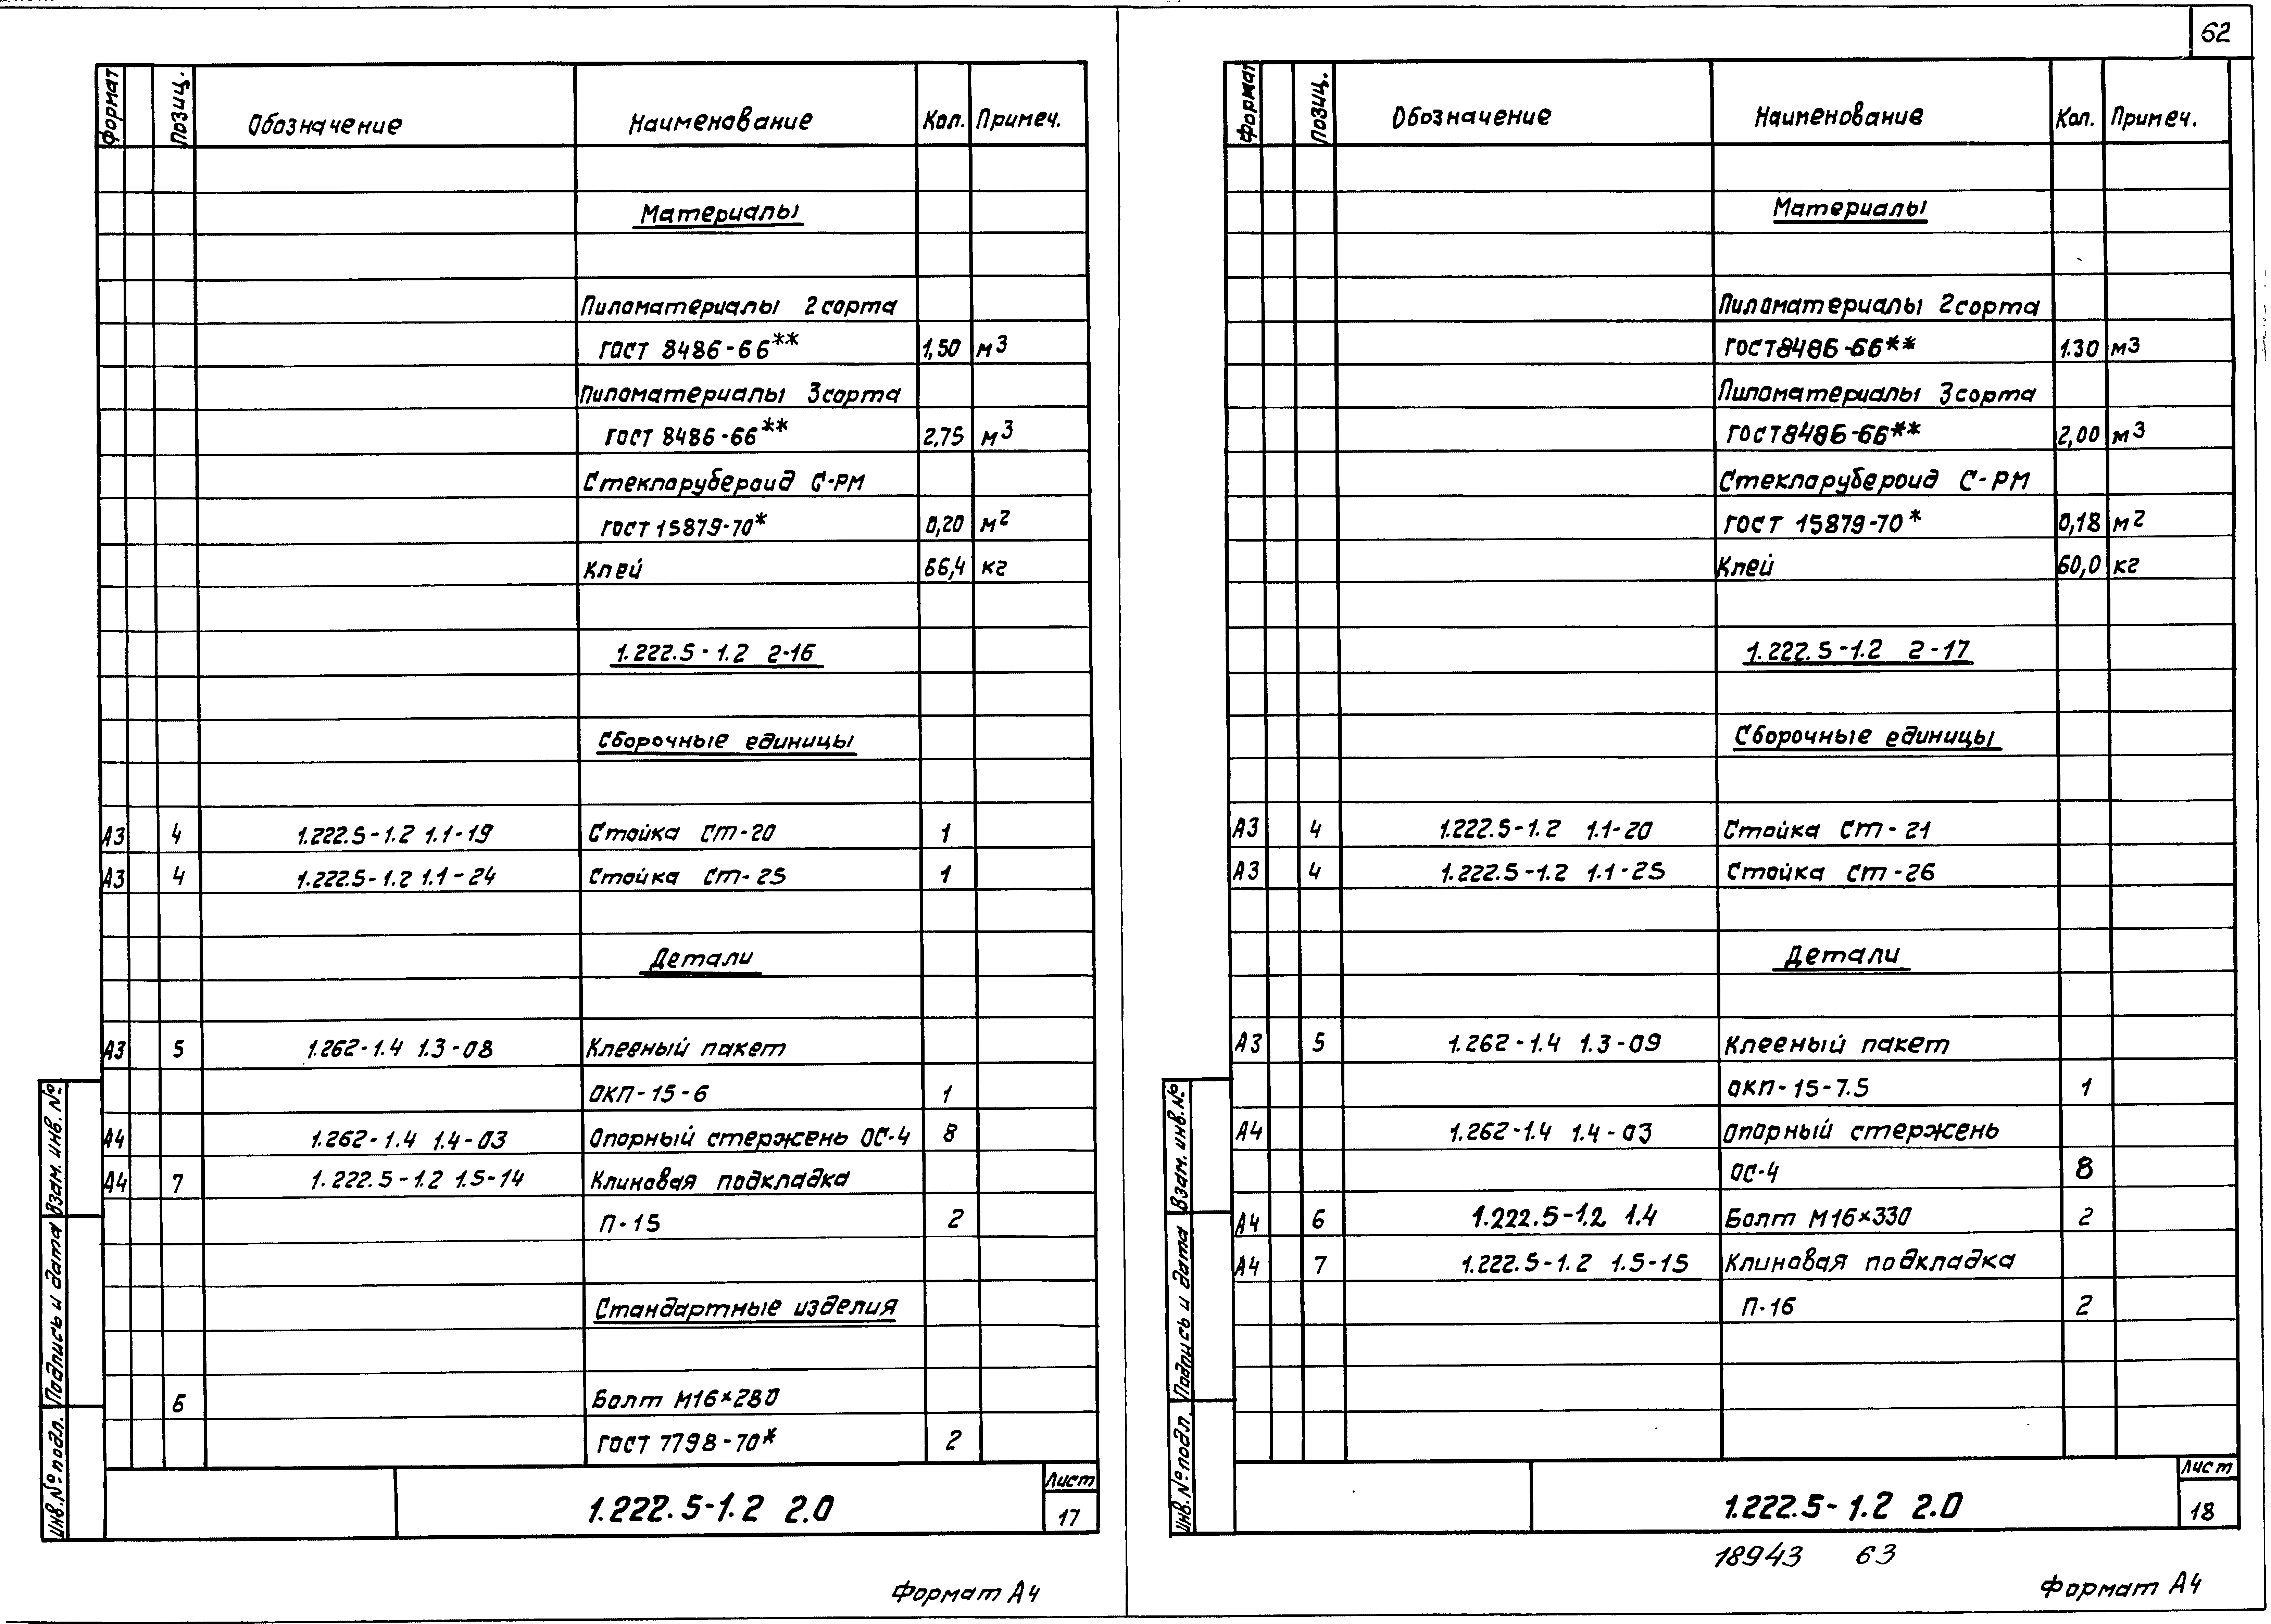 62
Формат Позиц. Обозначение Наименование Кол. Примеч.
Материалы
Пиломатериалы 2 сорта
ГОСТ 8486-66** 1,50 м3
Пиломатериалы 3 сорта
ГОСТ 8486-66** 2,75 м3
Стеклорубероид С-РМ
ГОСТ 15879-70* 0,20 м2
Клей 66,4 кг
1.222.5-1.2 2-16
Сборочные единицы
А3 4 1.222.5-1.2 1.1-19 Стойка Ст-20 1
А3 4 1.222.5-1.2 1.1-24 Стойка Ст-25 1
Детали
А3 5 1.262-1.4 1.3-08 Клееный пакет
ОКП-15-6 1
А4 1.262-1.4 1.4-03 Опорный стержень ОС-4 8
А4 7 1.222.5-1.2 1.5-14 Клиновая подкладка
П-15 2
Стандартные изделия
6 Болт М16×280
ГОСТ 7798-70* 2
Инв.№ подл. Подпись и дата Взам. инв. №
1.222.5-1.2 2.0
Лист
17
Формат А4
Формат Позиц. Обозначение Наименование Кол. Примеч.
Материалы
Пиломатериалы 2 сорта
ГОСТ 8486-66** 1.30 м3
Пиломатериалы 3 сорта
ГОСТ 8486-66** 2,00 м3
Стеклорубероид С-РМ
ГОСТ 15879-70* 0,18 м2
Клей 60,0 кг
1.222.5-1.2 2-17
Сборочные единицы
А3 4 1.222.5-1.2 1.1-20 Стойка Ст-21
А3 4 1.222.5-1.2 1.1-25 Стойка Ст-26
Детали
А3 5 1.262-1.4 1.3-09 Клееный пакет
ОКП-15-7.5 1
А4 1.262-1.4 1.4-03 Опорный стержень
ОС-4 8
А4 6 1.222.5-1.2 1.4 Болт М16×330 2
А4 7 1.222.5-1.2 1.5-15 Клиновая подкладка
П-16 2
Инв.№ подл. Подпись и дата Взам. инв. №
1.222.5-1.2 2.0
Лист
18
18943 63
Формат А4